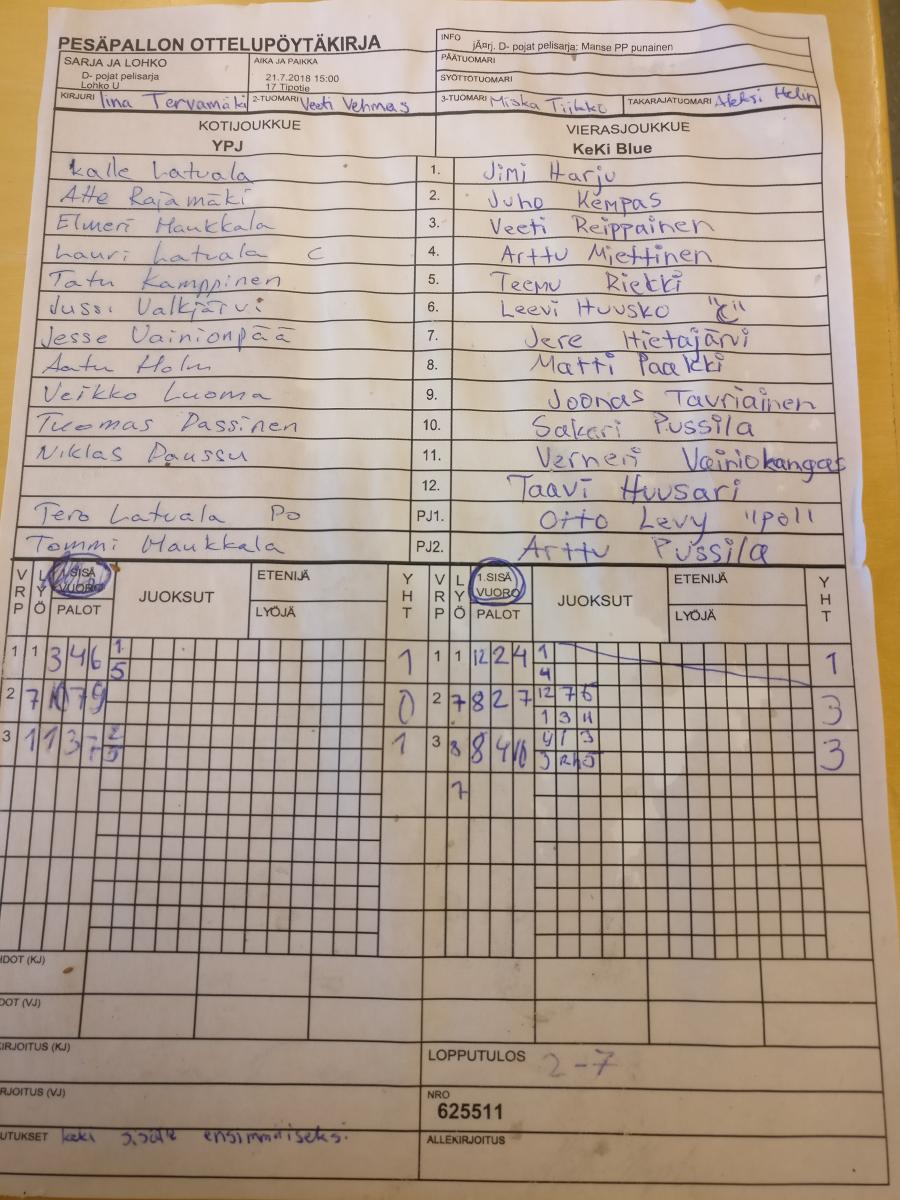 PESÄPALLON OTTELUPÖYTÄKIRJA
INFO jÃ¤rj. D- pojat pelisarja: Manse PP punainen
SARJA JA LOHKO
D- pojat pelisarja
Lohko U
AIKA JA PAIKKA
21.7.2018 15:00
17 Tipotie
PÄÄTUOMARI
SYÖTTOTUOMARI
KIRJURI Iina Tervamäki 2-TUOMARI Veeti Vehmas 3-TUOMARI Miska Tiikko TAKARAJATUOMARI Aleksi Helin
KOTIJOUKKUE VIERASJOUKKUE
YPJ KeKi Blue
Kalle Latvala 1. Jimi Harju
Atte Rajamäki 2. Juho Kempas
Elmeri Maukkala 3. Veeti Reippainen
Lauri Latvala C 4. Arttu Miettinen
Tatu Kamppinen 5. Teemu Riekki
Jussi Valkjärvi 6. Leevi Huusko "C"
Jesse Vainionpää 7. Jere Hietajärvi
Aatu Holm 8. Matti Paakki
Veikko Luoma 9. Joonas Tauriainen
Tuomas Passinen 10. Sakari Pussila
Niklas Paussu 11. Verneri Vainiokangas
12. Taavi Huusari
Tero Latvala Po PJ1. Otto Levy "po"
Tommi Maukkala PJ2. Arttu Pussila
VRP LYÖ 1.SISÄ VUORO PALOT JUOKSUT ETENIJÄ LYÖJÄ YHT VRP LYÖ 1.SISÄ VUORO PALOT JUOKSUT ETENIJÄ LYÖJÄ YHT
1 1 3 4 6 1 1 1 1 12 2 4 1 1
5 4
2 7 10 7 9 0 2 7 8 2 7 12 7 6 3
1 3 11
3 11 3 7 2 1 3 8 8 4 10 4 1 3 3
3 5
7
LOPPUTULOS 2-7
KIRJOITUS (KJ)
RJOITUS (VJ)
NRO
625511
UTUKSET keki sisälle ensimmäiseksi.
ALLEKIRJOITUS